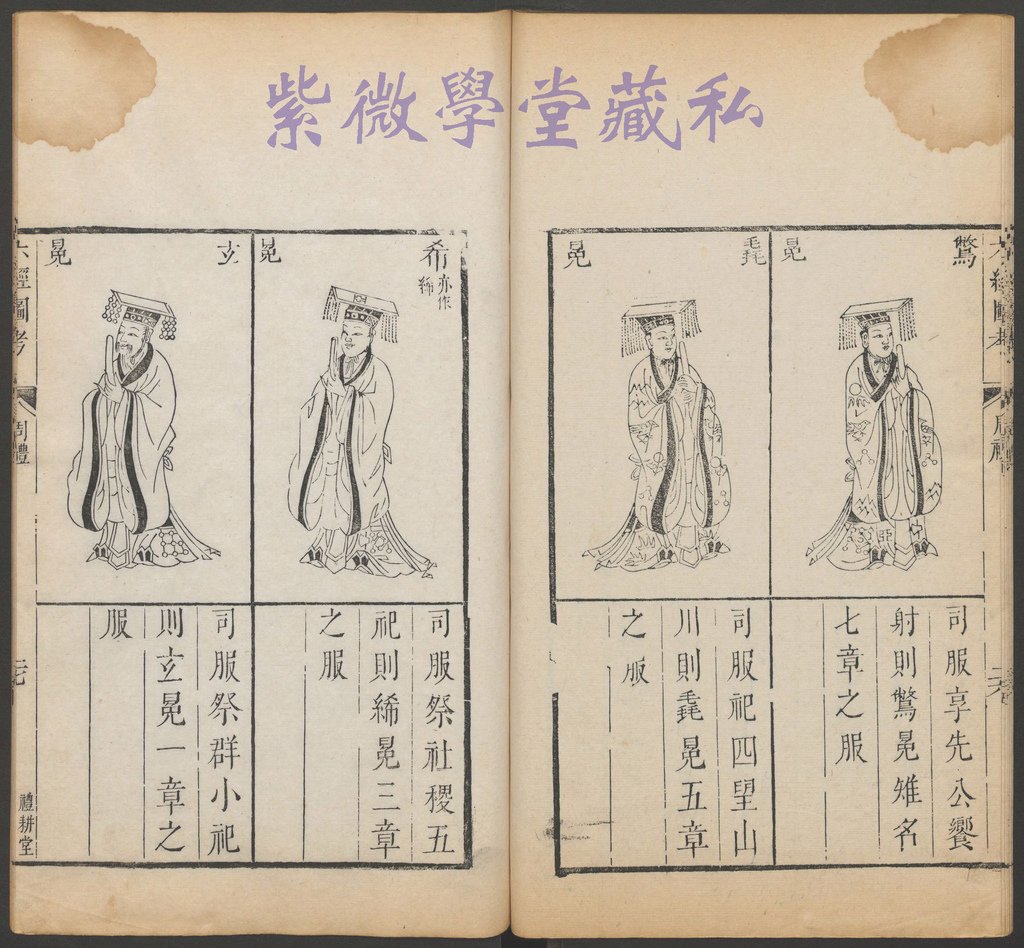 紫微學堂藏私
鷩
冕
司服享先公饗
射則鷩冕雉名
七章之服
毳
冕
司服祀四望山
川則毳冕五章
之服
希亦作絺
冕
司服祭社稷五
祀則絺冕三章
之服
玄
冕
司服祭群小祀
則玄冕一章之
服
六經圖考
周禮
禮耕堂